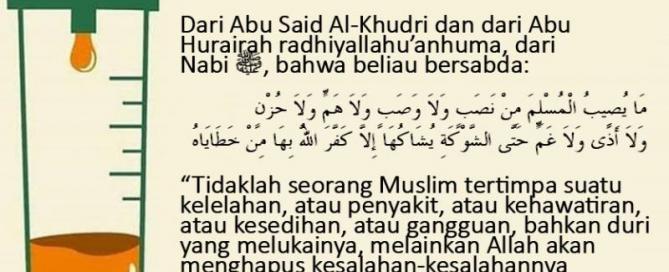 Dari Abu Said Al-Khudri dan dari Abu
Hurairah radhiyallahu’anhuma, dari
Nabi ﷺ, bahwa beliau bersabda:
مَا يُصِيبُ الْمُسْلِمَ مِنْ نَصَبٍ وَلَا وَصَبٍ وَلَا هَمٍّ وَلَا حُزْنٍ
وَلَا أَذًى وَلَا غَمٍّ حَتَّى الشَّوْكَةِ يُشَاكُهَا إِلَّا كَفَّرَ اللَّهُ بِهَا مِنْ خَطَايَاهُ
“Tidaklah seorang Muslim tertimpa suatu
kelelahan, atau penyakit, atau kehawatiran,
atau kesedihan, atau gangguan, bahkan duri
yang melukainya, melainkan Allah akan
menghapus kesalahan-kesalahannya